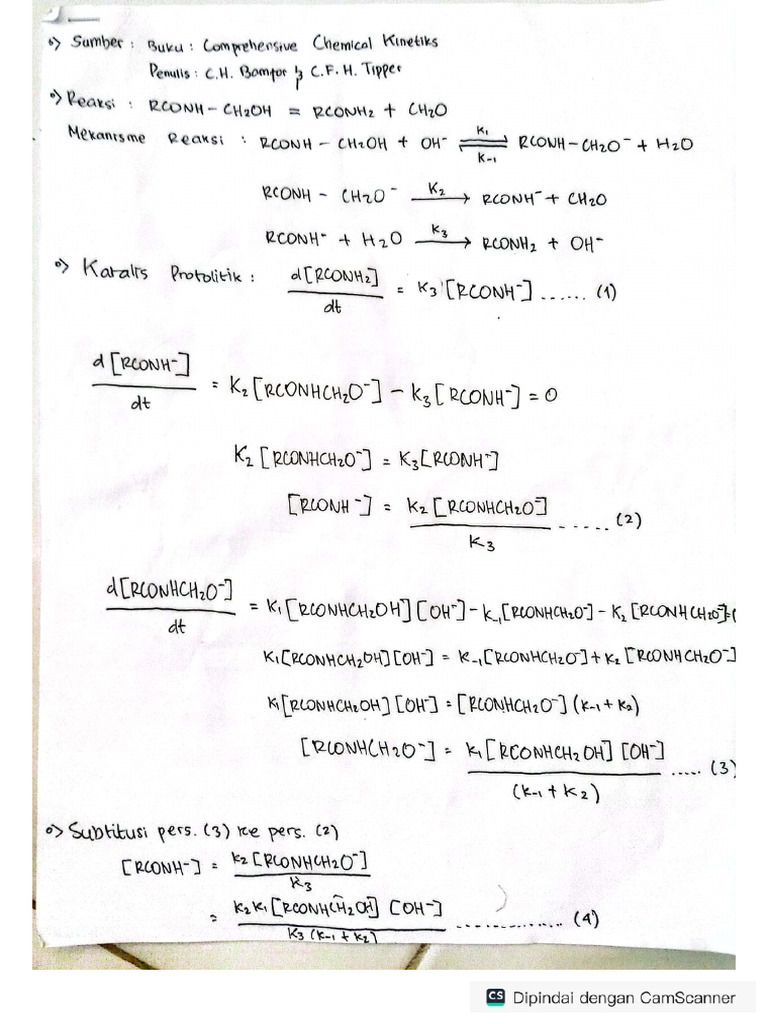 •) Sumber : Buku : Comprehensive Chemical Kinetiks
Penulis : C.H. Bamfor & C.F.H. Tipper
•) Reaksi : RCONH – CH₂OH = RCONH₂ + CH₂O
Mekanisme Reaksi : RCONH – CH₂OH + OH⁻ ⇌ (K₁ / K₋₁) RCONH–CH₂O⁻ + H₂O
RCONH – CH₂O⁻ —K₂→ RCONH⁻ + CH₂O
RCONH⁻ + H₂O —K₃→ RCONH₂ + OH⁻
•) Katalis Protolitik : d[RCONH₂]/dt = K₃ [RCONH⁻] ...... (1)
d[RCONH⁻]/dt = K₂[RCONHCH₂O⁻] – K₃[RCONH⁻] = 0
K₂ [RCONHCH₂O⁻] = K₃[RCONH⁻]
[RCONH⁻] = K₂[RCONHCH₂O⁻]/K₃ ...... (2)
d[RCONHCH₂O⁻]/dt = K₁[RCONHCH₂OH][OH⁻] – K₋₁[RCONHCH₂O⁻] – K₂[RCONHCH₂O⁻] =
K₁[RCONHCH₂OH][OH⁻] = K₋₁[RCONHCH₂O⁻] + K₂[RCONHCH₂O⁻]
K₁[RCONHCH₂OH][OH⁻] = [RCONHCH₂O⁻](K₋₁ + K₂)
[RCONHCH₂O⁻] = K₁[RCONHCH₂OH][OH⁻]/(K₋₁ + K₂) ..... (3)
•) Subtitusi pers. (3) ke pers. (2)
[RCONH⁻] = K₂[RCONHCH₂O⁻]/K₃
= K₂K₁[RCONHCH₂OH][OH⁻]/K₃(K₋₁ + K₂) .............. (4)
CS Dipindai dengan CamScanner